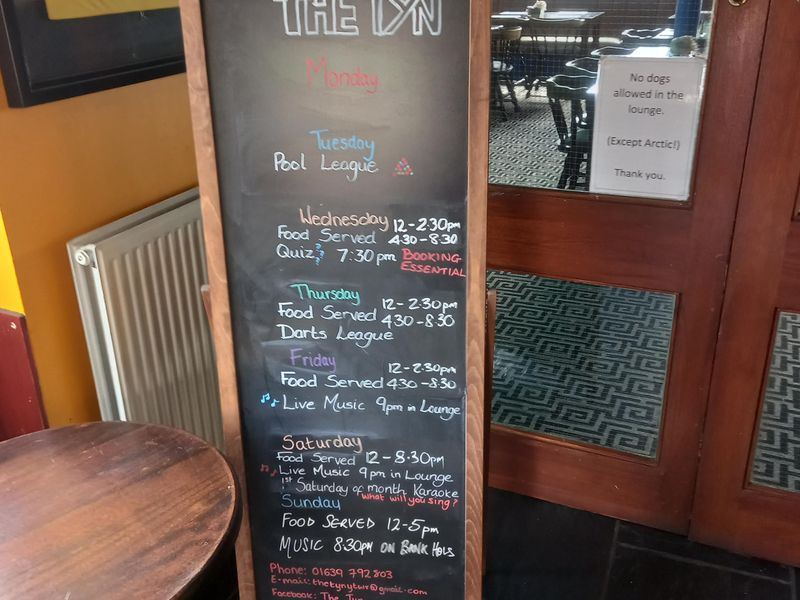 THE TYN
Monday
Tuesday
Pool League
Wednesday 12-2.30pm
Food Served 4.30-8.30
Quiz 7:30pm BOOKING
ESSENTIAL
Thursday 12-2.30pm
Food Served 4.30-8.30
Darts League
Friday 12-2.30pm
Food Served 4.30-8.30
Live Music 9pm in Lounge
Saturday
Food Served 12-8.30pm
Live Music 9pm in Lounge
1st Saturday of month Karaoke
what will you sing?
Sunday
FOOD SERVED 12-5pm
MUSIC 8.30pm ON BANK HOLS
Phone: 01639 792803
E-mail: thetynytwr@gmail.com
Facebook: The Tyn
No dogs
allowed in the
lounge.
(Except Arctic!)
Thank you.